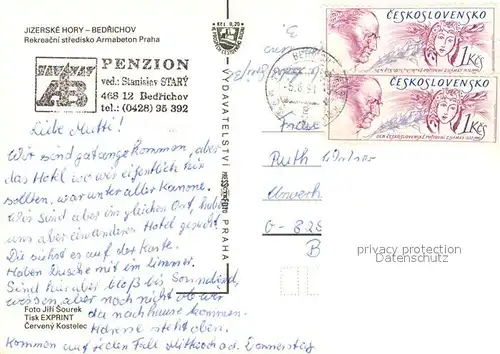 JIZERSKÉ HORY – BEDŘICHOV
Rekreační středisko Armabeton Praha
PENZION
ved.: Stanislav STARÝ
468 12 Bedřichov
tel.: (0428) 35 392
AB
Liebe Mutti!
Wir sind gut angekommen, aber
das Hotel wo wir eigentlich hin
sollten, war unter aller Kanone.
Wir sind aber im gleichen Ort, haben
uns aber ein anderes Hotel gesucht.
Die siehst es auf der Karte.
Haben Dusche mit im Zimmer.
Sind hier aber bloß bis Sonnabend,
wissen aber noch nicht ob wir
da nach hause kommen.
Adresse steht oben.
Kommen auf jeden Fall Mittwoch od. Donnerstag
Foto Jiří Šourek
Tisk EXPRINT
Červený Kostelec
Kčs 0,70
VYDAVATELSTVÍ
PRAHA
BEDŘICHOV
ČESKOSLOVENSKO
1 Kčs
ČESKOSLOVENSKO
DEN ČESKOSLOVENSKÉ POŠTOVNÍ ZNÁMKY
1 Kčs
Frau
Ruth
O-825
privacy protection
Datenschutz